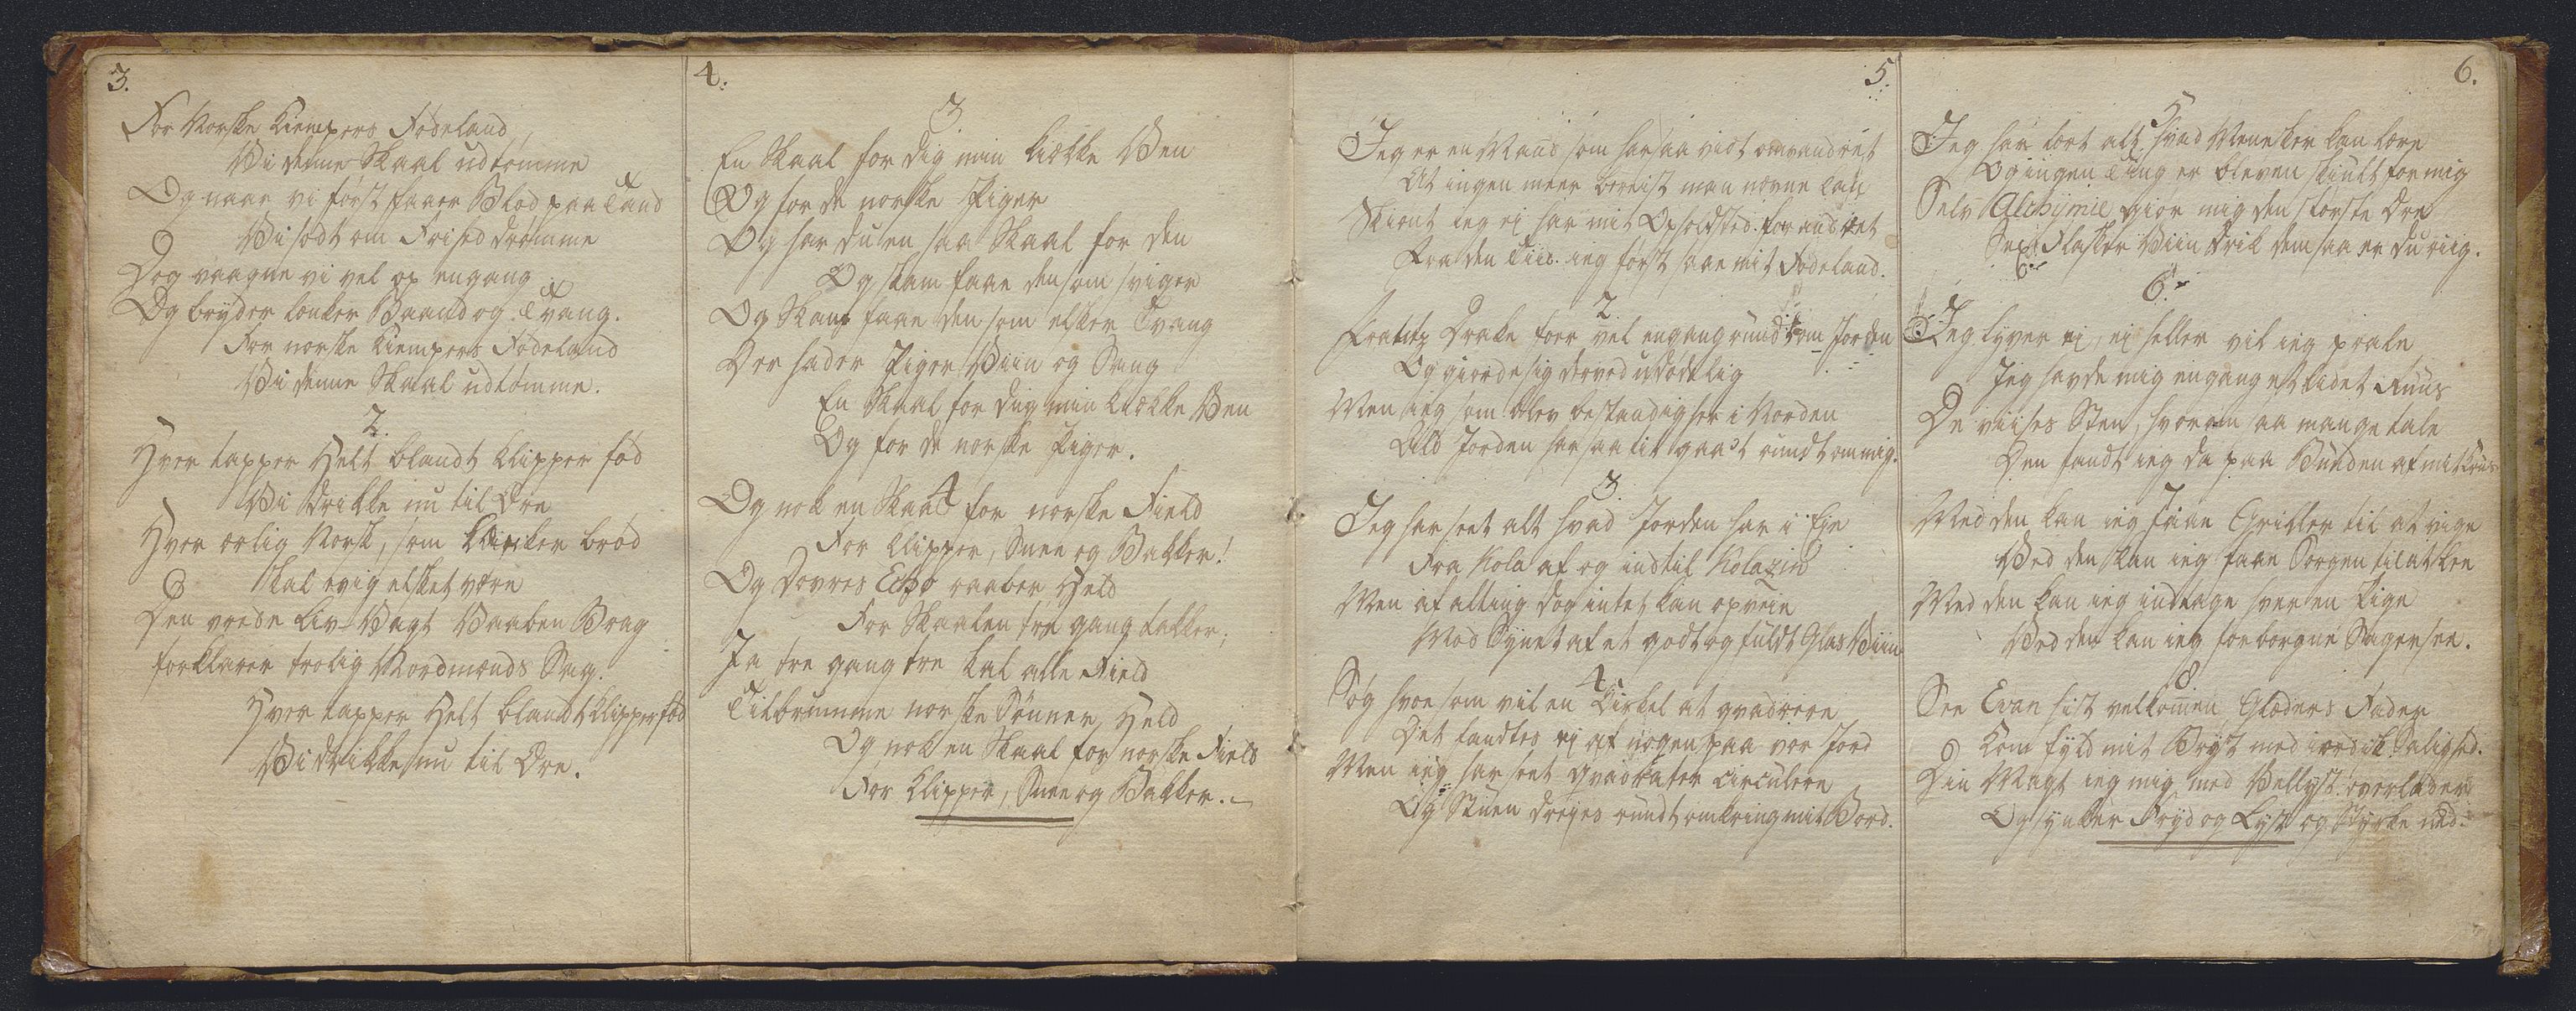 3.
For Norske Kiempers Fødeland
Vi denne Skaal udtømme
Og naar vi først faaer Blod paa Tand
Vi sødt om Frihed drømme
Dog vaagne vi vel op engang
Og bryder Lænker Baand og Tvang.
For norske Kiempers Fødeland
Vi denne Skaal udtømme.
2.
Hver tapper Helt blandt Klipper fød
Vi drikke nu til Ære
Hver ærlig Norsk, som Lænker brød
Skal evig elsket være
Den vrede Liv-Vagt Vaaben Brag
forklarer trolig Nordmænds Sag.
Hver tapper Helt blandt Klipper fød
Vi drikke nu til Ære.
4.
3
En Skaal for dig min kiække Ven
Og for de norske Piger
Og har du en saa Skaal for den
Og skam faae den som sviger
Og Skam faae den som elsker Tvang
Der hader Piger Viin og Sang
En Skaal for dig min kiække Ven
Og for de norske Piger.
4
Og nok en Skaal for norske Field
For Klipper, Snee og Bakker!
Og Dovres Echo raaber Held
For Skaalen tre gang takker;
Ja tre gang tre skal alle Field
Tilbrumme norske Sønner Held
Og nok en Skaal for norske Field
For Klipper, Snee og Bakker.
5.
Jeg er en Mand som har saa vidt omvandret
At ingen meer bereist man nævne kan
Skiønt ieg ej har mit Opholdsted forandret
Fra den Tiid ieg først saae mit Fødeland.
2.
Frantz Drake foer vel engang rundt om Jorden
Og giorde sig derved udødelig
Men ieg som blev bestandig her i Norden
Ald Jorden har saa tit gaaet rundt om mig.
3
Jeg har seet alt hvad Jorden har i Eje
Fra Kola af og indtil Kolazin
Men af alting dog intet kan opveie
Mod Synet af et godt og fuldt Glas Viin
4
Søg hvo som vil en Cirkel at qvadrere
Det fandtes ej af nogen paa vor Jord
Men ieg har seet qvadrater circulere
Og Stuen drejes rundt omkring mit Bord.
6.
5
Jeg har lært alt hvad Mennesker kan lære
Og ingen Ting er bleven skiult for mig
Selv Alchymie giør mig den største Ære
Sex Flasker Viin drik dem saa er du riig.
6.
Jeg lyver ej, ej heller vil ieg prale
Jeg havde mig engang et lidet Ruus
De viises Sten, hvorom saa mange tale
Den fandt ieg da paa Bunden af mit Kruus
Med den kan ieg faae Griller til at vige
Ved den kan ieg faae Sorgen til at lee
Med den kan ieg indtage hver en Pige
Ved den kan ieg forborgne Sager see.
8
See Evan hist velkommen Glæders Fader
Kom fyld mit Bryst med iordisk Salighed.
Din Magt ieg mig med Vellyst overlader
Og synker Fryd og Lyst og Styrke ned.